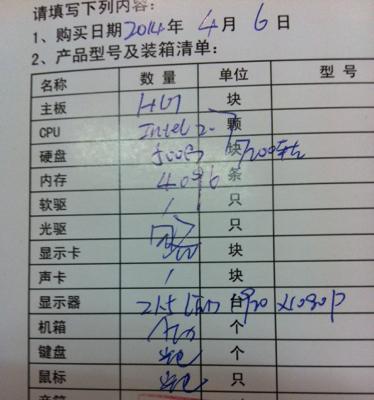 请填写下列内容：
1、购买日期2014年 4月 6日
2、产品型号及装箱清单：
名称 数量 单位 型号
主板 H61 块
CPU Intel 2.7 颗
硬盘 500G 块 7200转
内存 4096 条
软驱 / 只
光驱 只
显示卡 块
声卡 / 块
显示器 21.5 LED 台 1920 x1080P
机箱 个
键盘 个
鼠标 只
音箱